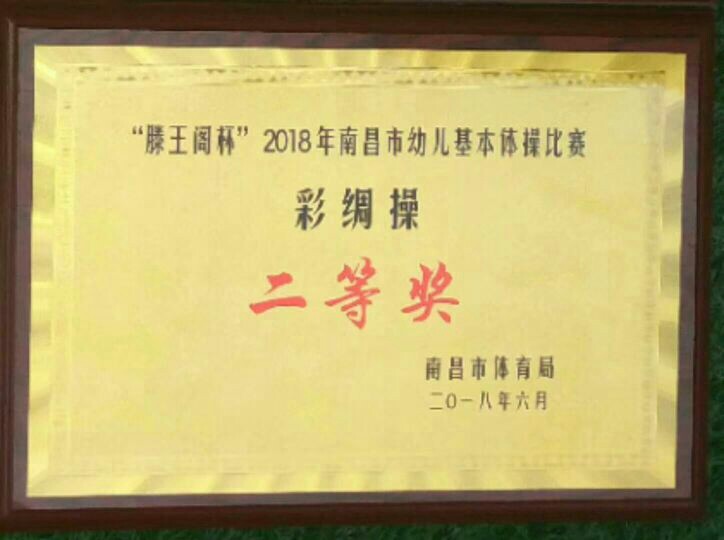 “滕王阁杯”2018年南昌市幼儿基本体操比赛
彩绸操
二等奖
南昌市体育局
二〇一八年六月